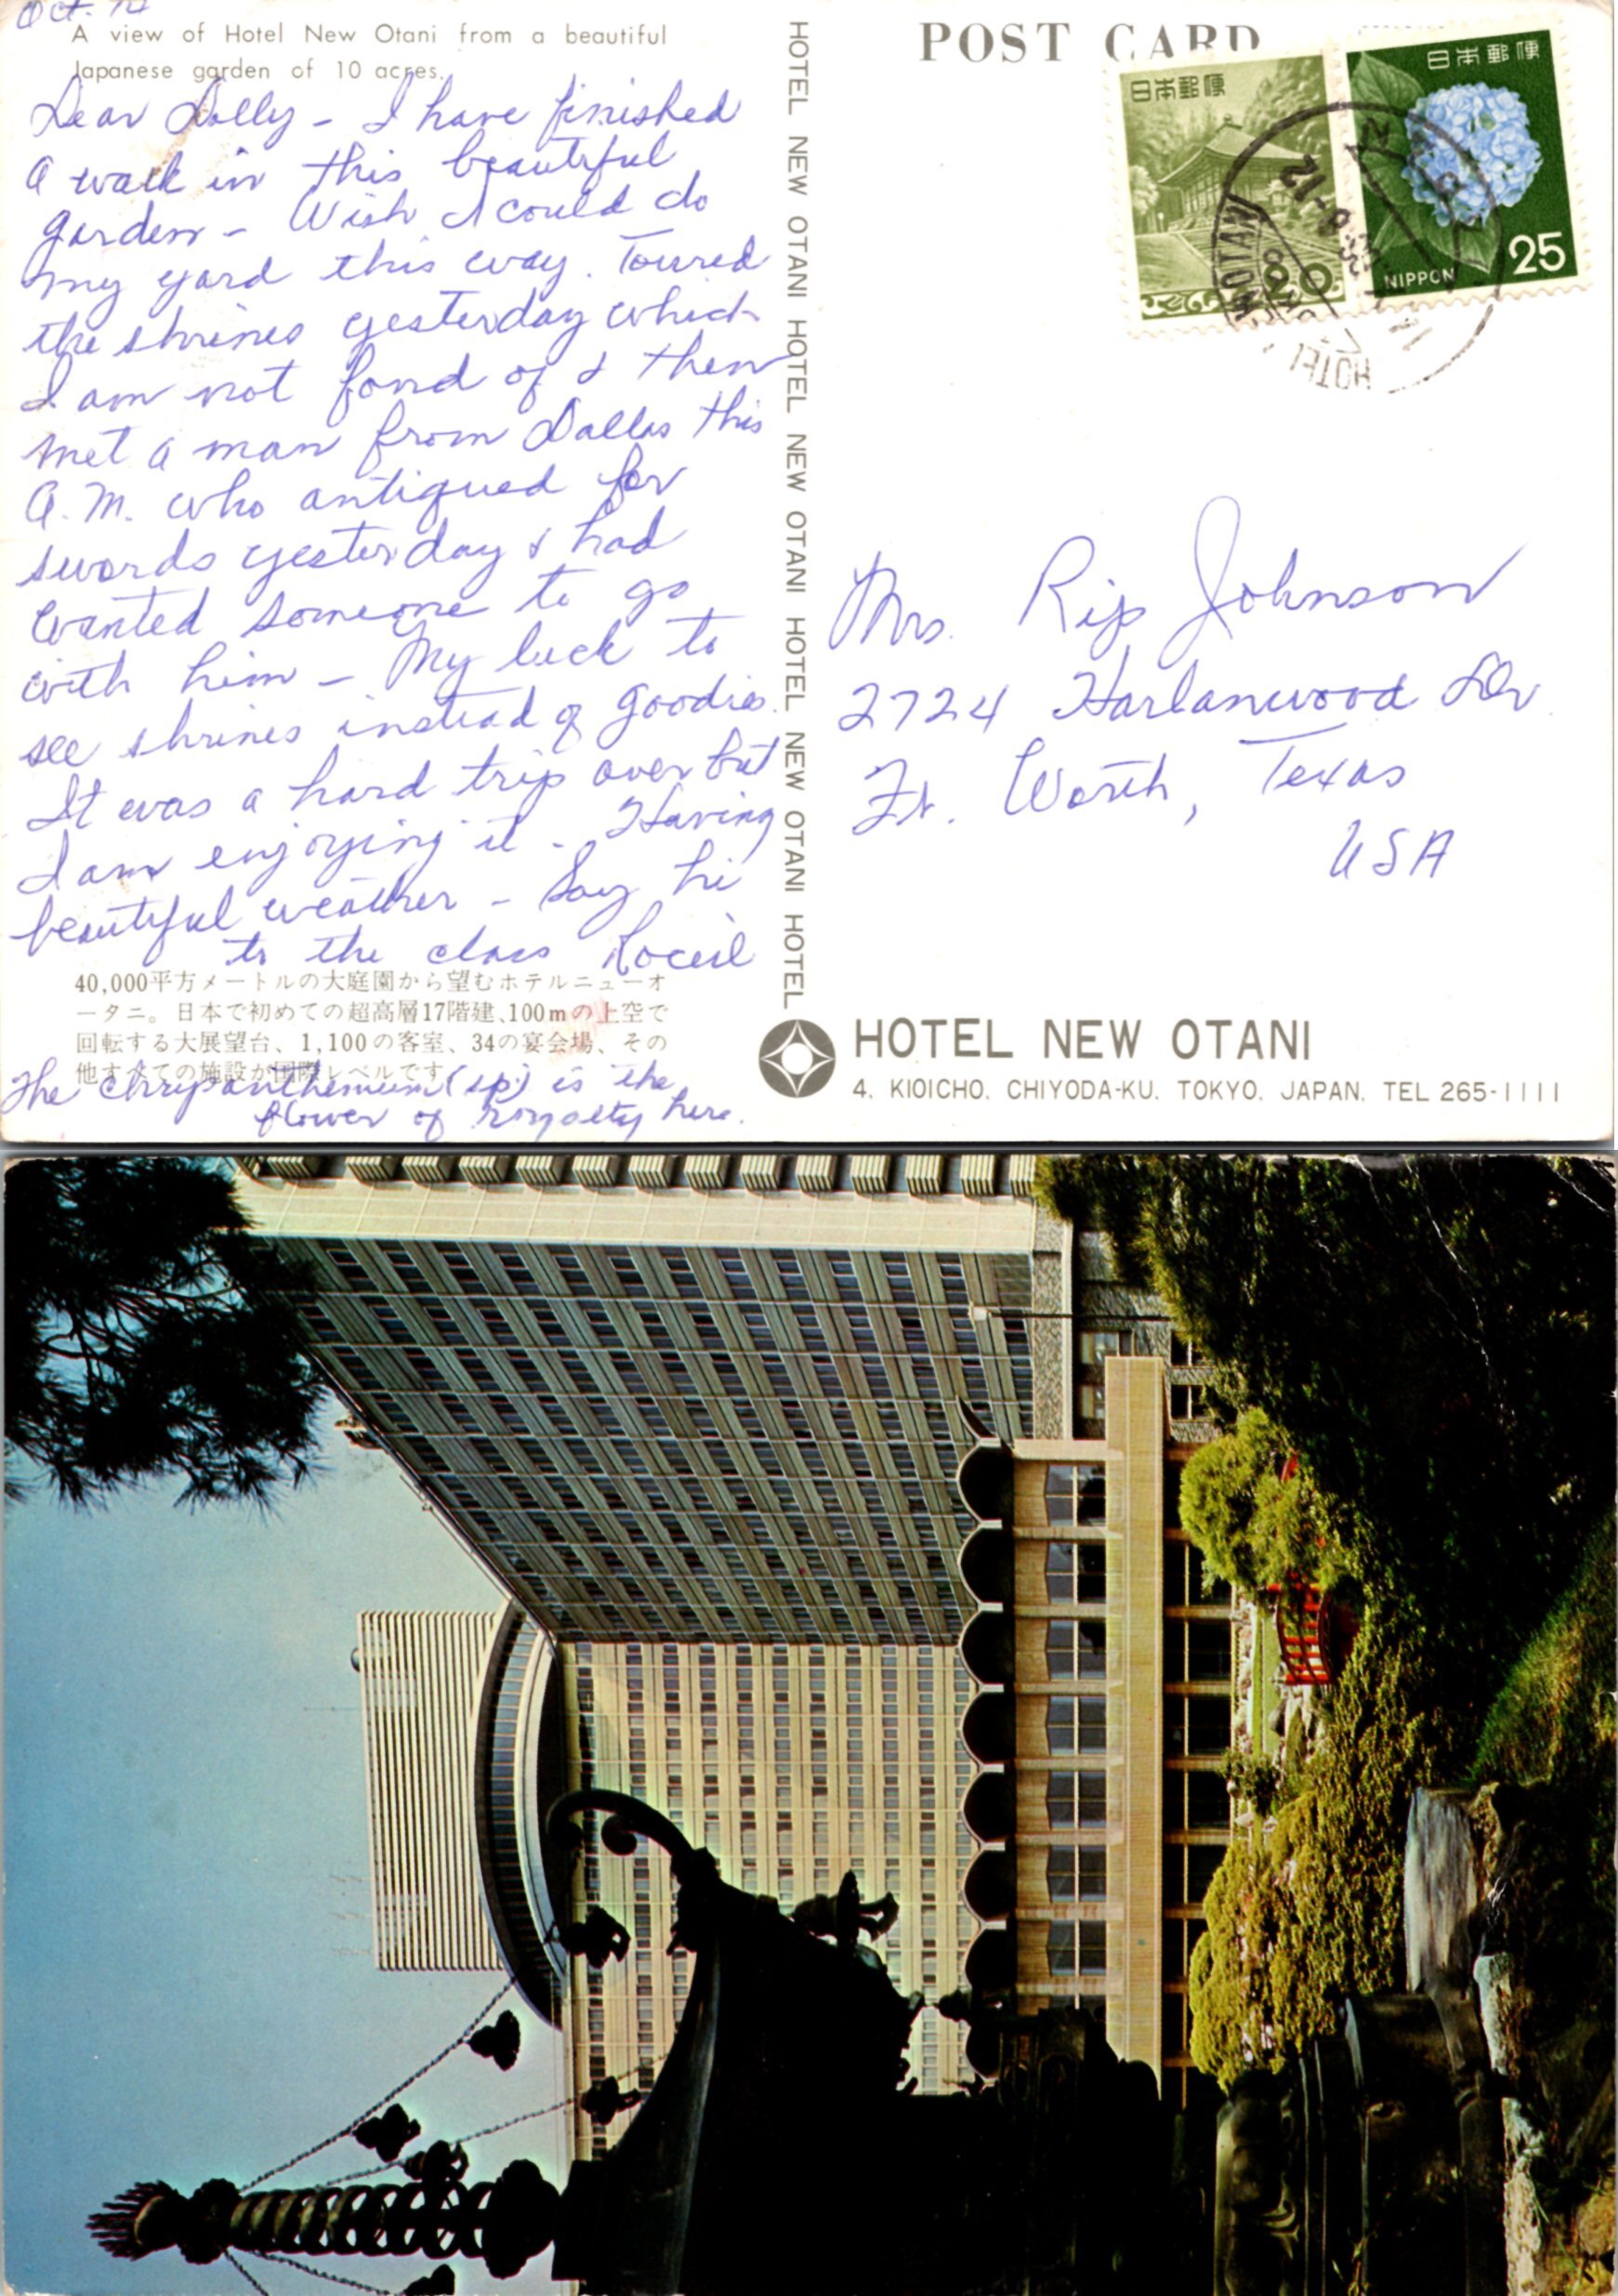 Oct. 14
A view of Hotel New Otani from a beautiful
Japanese garden of 10 acres.
Dear Dolly - I have finished
a walk in this beautiful
garden - Wish I could do
my yard this way. Toured
the shrines yesterday which
I am not fond of & then
met a man from Dallas this
A.M. who antiqued for
swords yesterday & had
wanted someone to go
with him - My luck to
see shrines instead of goodies.
It was a hard trip over but
I am enjoying it - Having
beautiful weather - Say hi
to the class Roceil
40,000平方メートルの大庭園から望むホテルニューオ
ータニ。日本で初めての超高層17階建、100mの上空で
回転する大展望台、1,100の客室、34の宴会場、その
他すべての施設が国際レベルです
The Chrysanthemum (sp) is the
flower of royalty here.
HOTEL NEW OTANI HOTEL NEW OTANI HOTEL NEW OTANI HOTEL NEW OTANI HOTEL
POST CARD
日本郵便
20
日本郵便
NIPPON
25
HOTEL
Mrs. Rip Johnson
2724 Harlanwood Dr
Ft. Worth, Texas
USA
HOTEL NEW OTANI
4, KIOICHO, CHIYODA-KU, TOKYO, JAPAN. TEL 265-1111